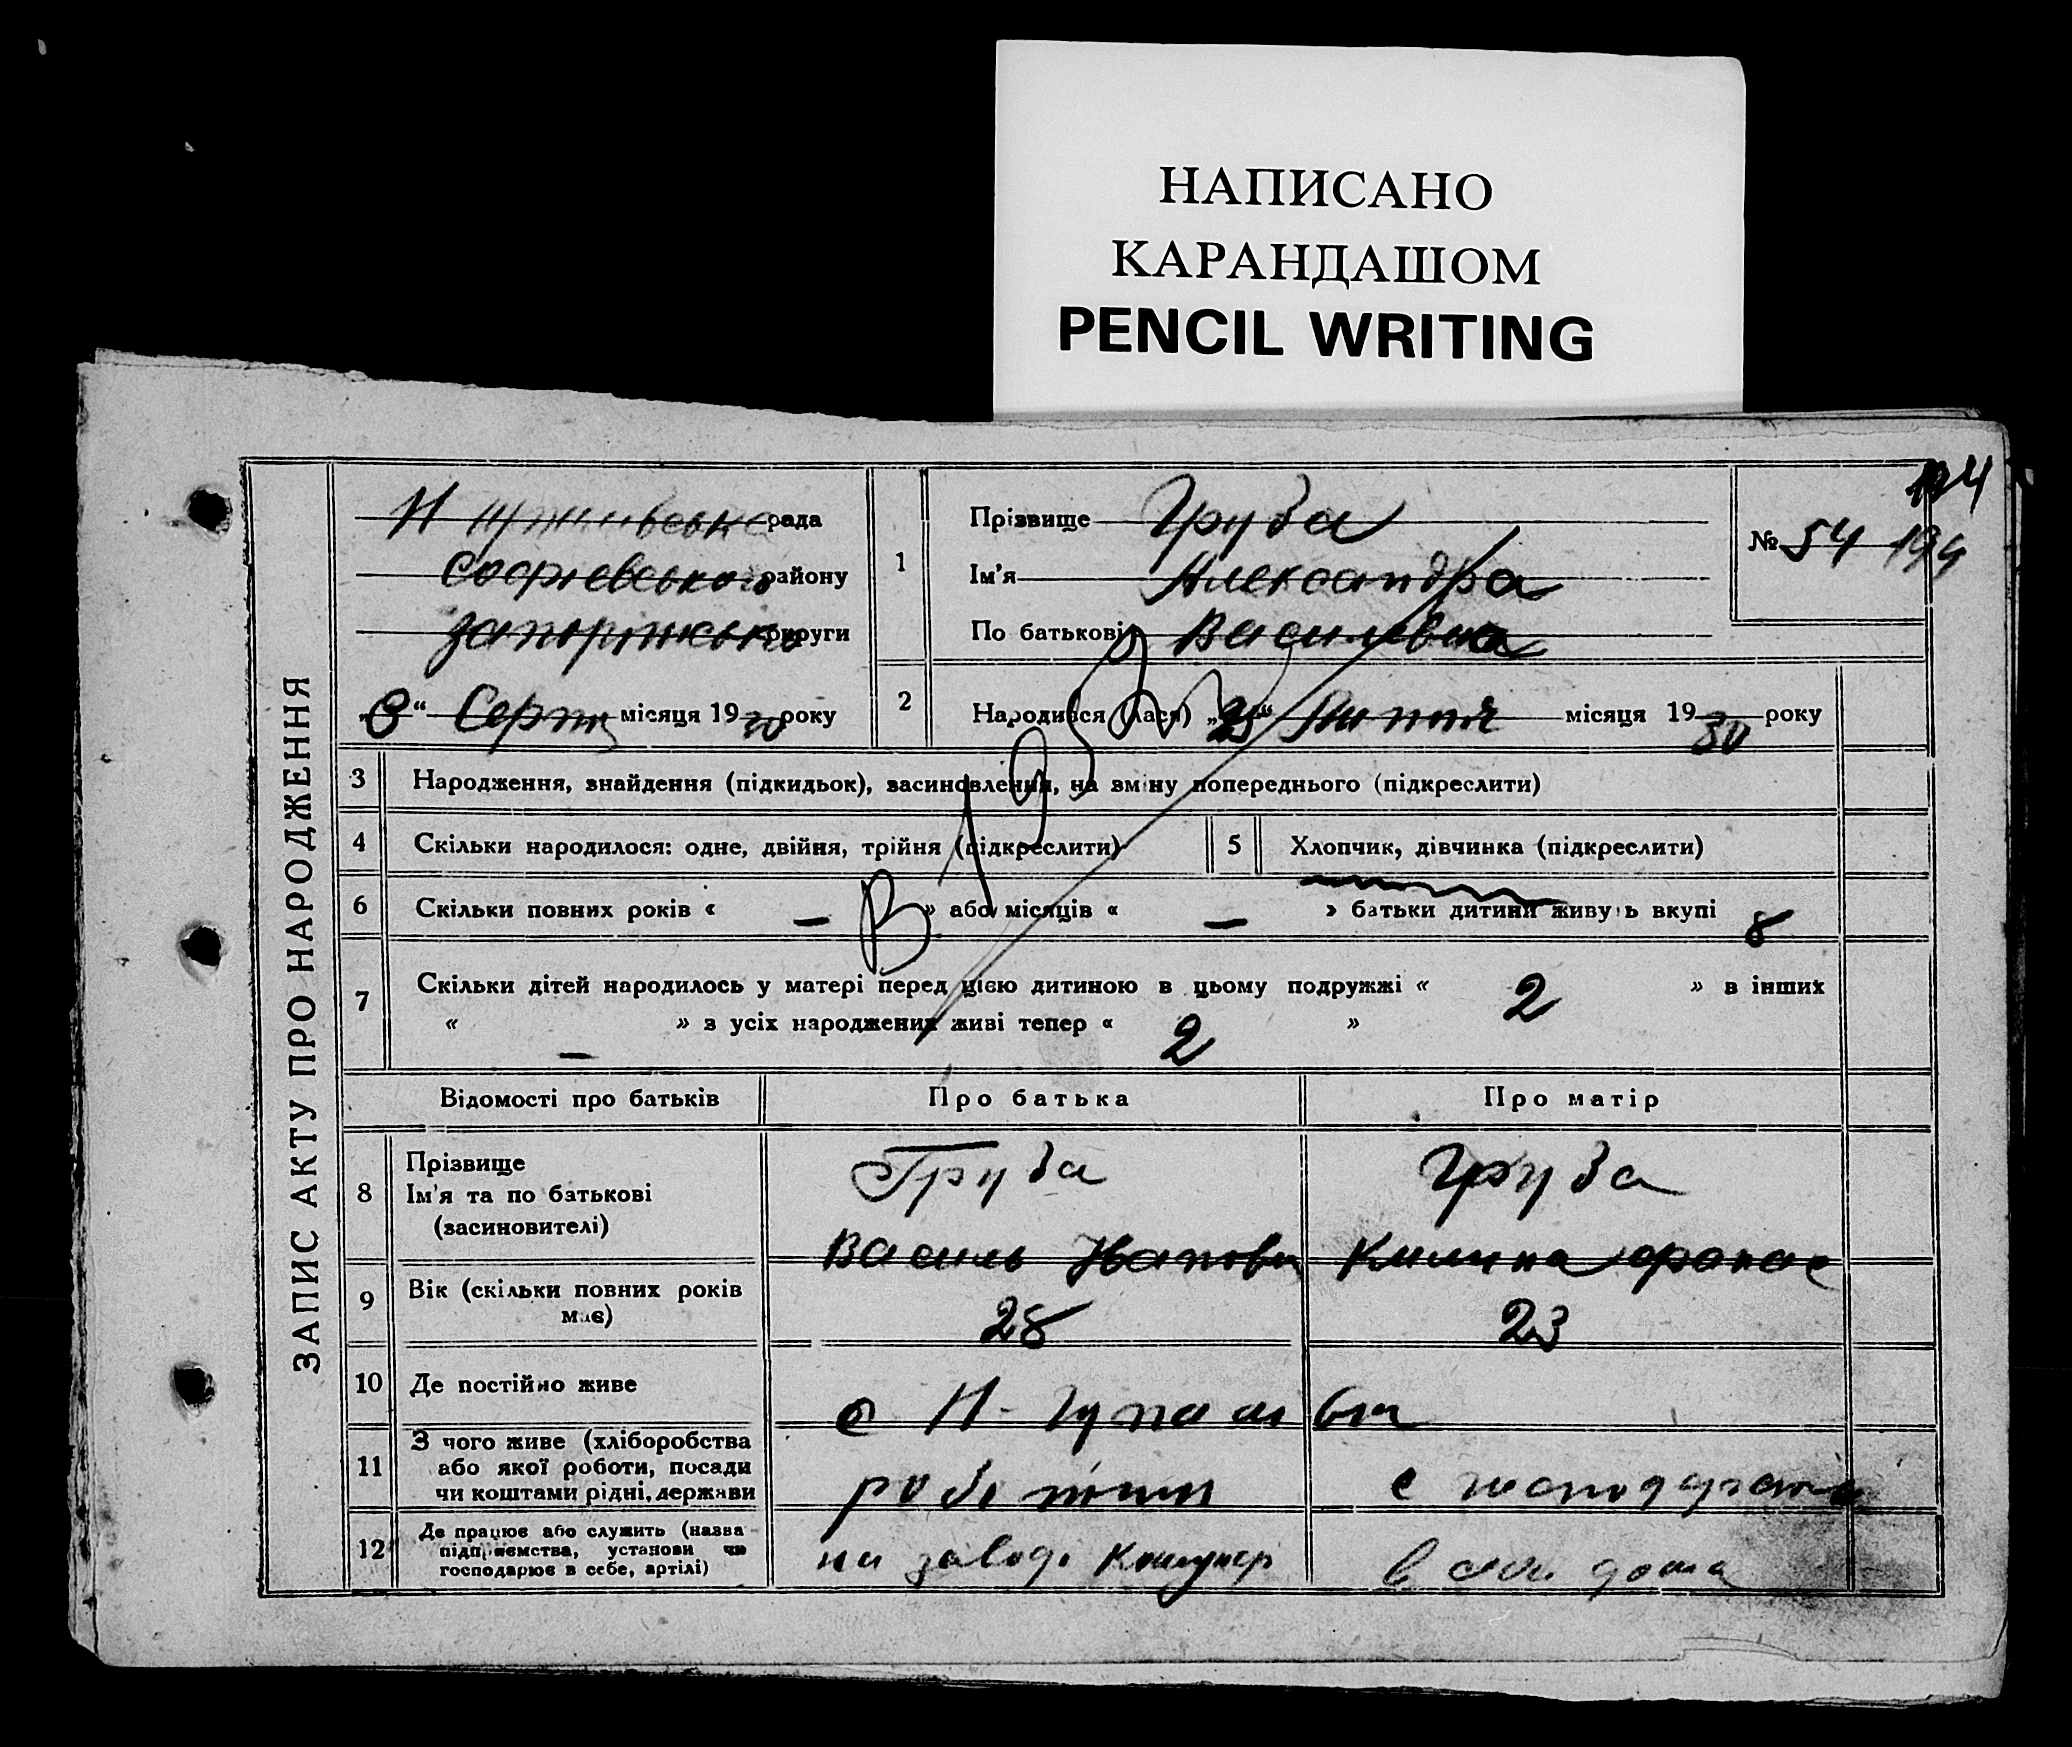 НАПИСАНО
КАРАНДАШОМ
PENCIL WRITING
ЗАПИС АКТУ ПРО НАРОДЖЕННЯ
рада
Софиевського району
Запоріжської округи
„8“ Серпня місяця 1930 року
1
Прізвище Груба
Ім'я Александра
По батькові Василовна
№ 54
2
Народився (лася) „25“ Липня місяця 1930 року
3 Народження, знайдення (підкидьок), засиновлення, на зміну попереднього (підкреслити)
4 Скільки народилося: одне, двійня, трійня (підкреслити)
5 Хлопчик, дівчинка (підкреслити)
6 Скільки повних років « – » або місяців « – » батьки дитини живуть вкупі 8
7 Скільки дітей народилось у матері перед цією дитиною в цьому подружжі « 2 » в інших
« – » з усіх народжених живі тепер « 2 »
Відомості про батьків Про батька Про матір
8 Прізвище Груба Груба
Ім'я та по батькові
(засиновителі)
Василь Иванови Килина Афанас
9 Вік (скільки повних років
має)
28 23
10 Де постійно живе
с Н-
11 З чого живе (хліборобства
або якої роботи, посади
чи коштами рідні, держави
робітник
12 Де працює або служить (назва
підприємства, установи чи
господарює в себе, артілі)
на заводі Комунар
дома